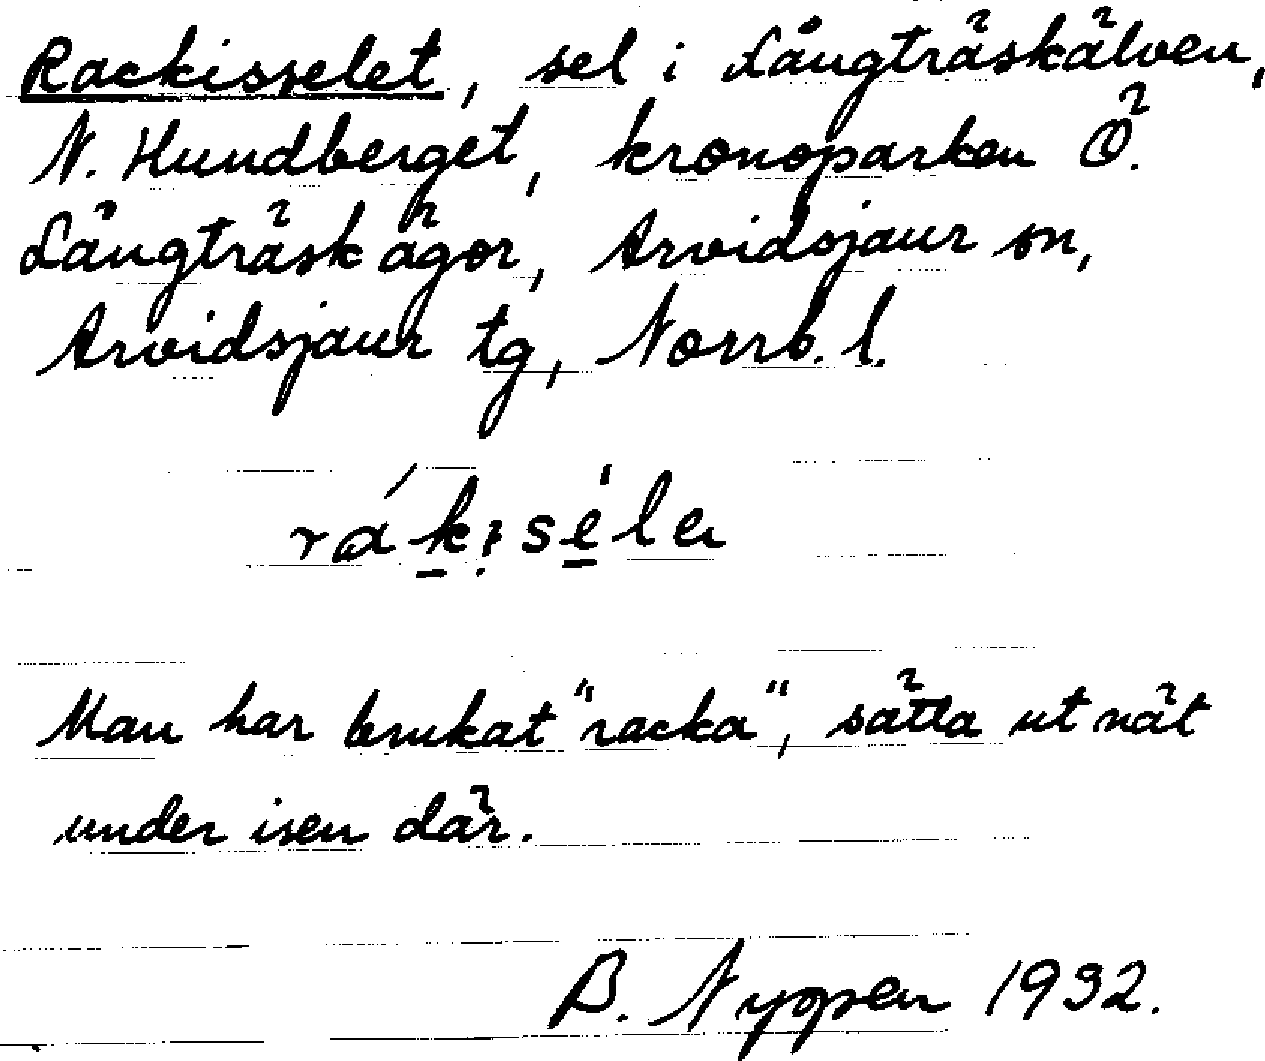 Rackisselet, sel i Långträskälven,
N. Hundberget, kronoparken Ö.
Långträskägor, Arvidsjaur sn,
Arvidsjaur tg, Norrb. l.
Man har brukat "racka", sätta ut nät
under isen där.
B. Nyqsen 1932.